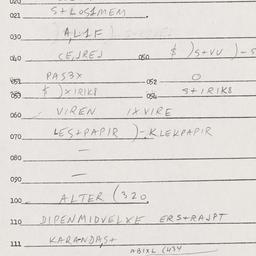 020
021 S+LOS1MEM
030 ALIF
040 CEJREJ 050 $ )S+VU )-S
051 PAS3X 052 O
053 $ )XIRIK8 054 S+IRIK8
060 VIREN IXVIRE
070 LES+PAPIR )-KLEKPAPIR
080 —
090 —
100 ALTER (320
110 DIPENMIDVELXE ERS+RAJPT
111 KARANDAS+
ABIXL (434